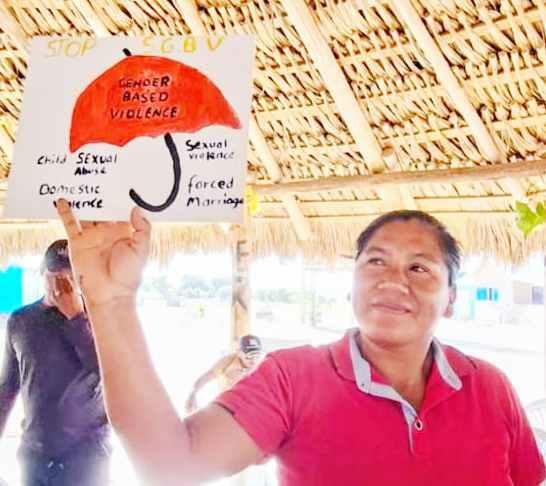 STOP SGBV
GENDER
BASED
VIOLENCE
Child SEXual
Abuse
Sexual
violence
Domestic
violence
forced
Marriage